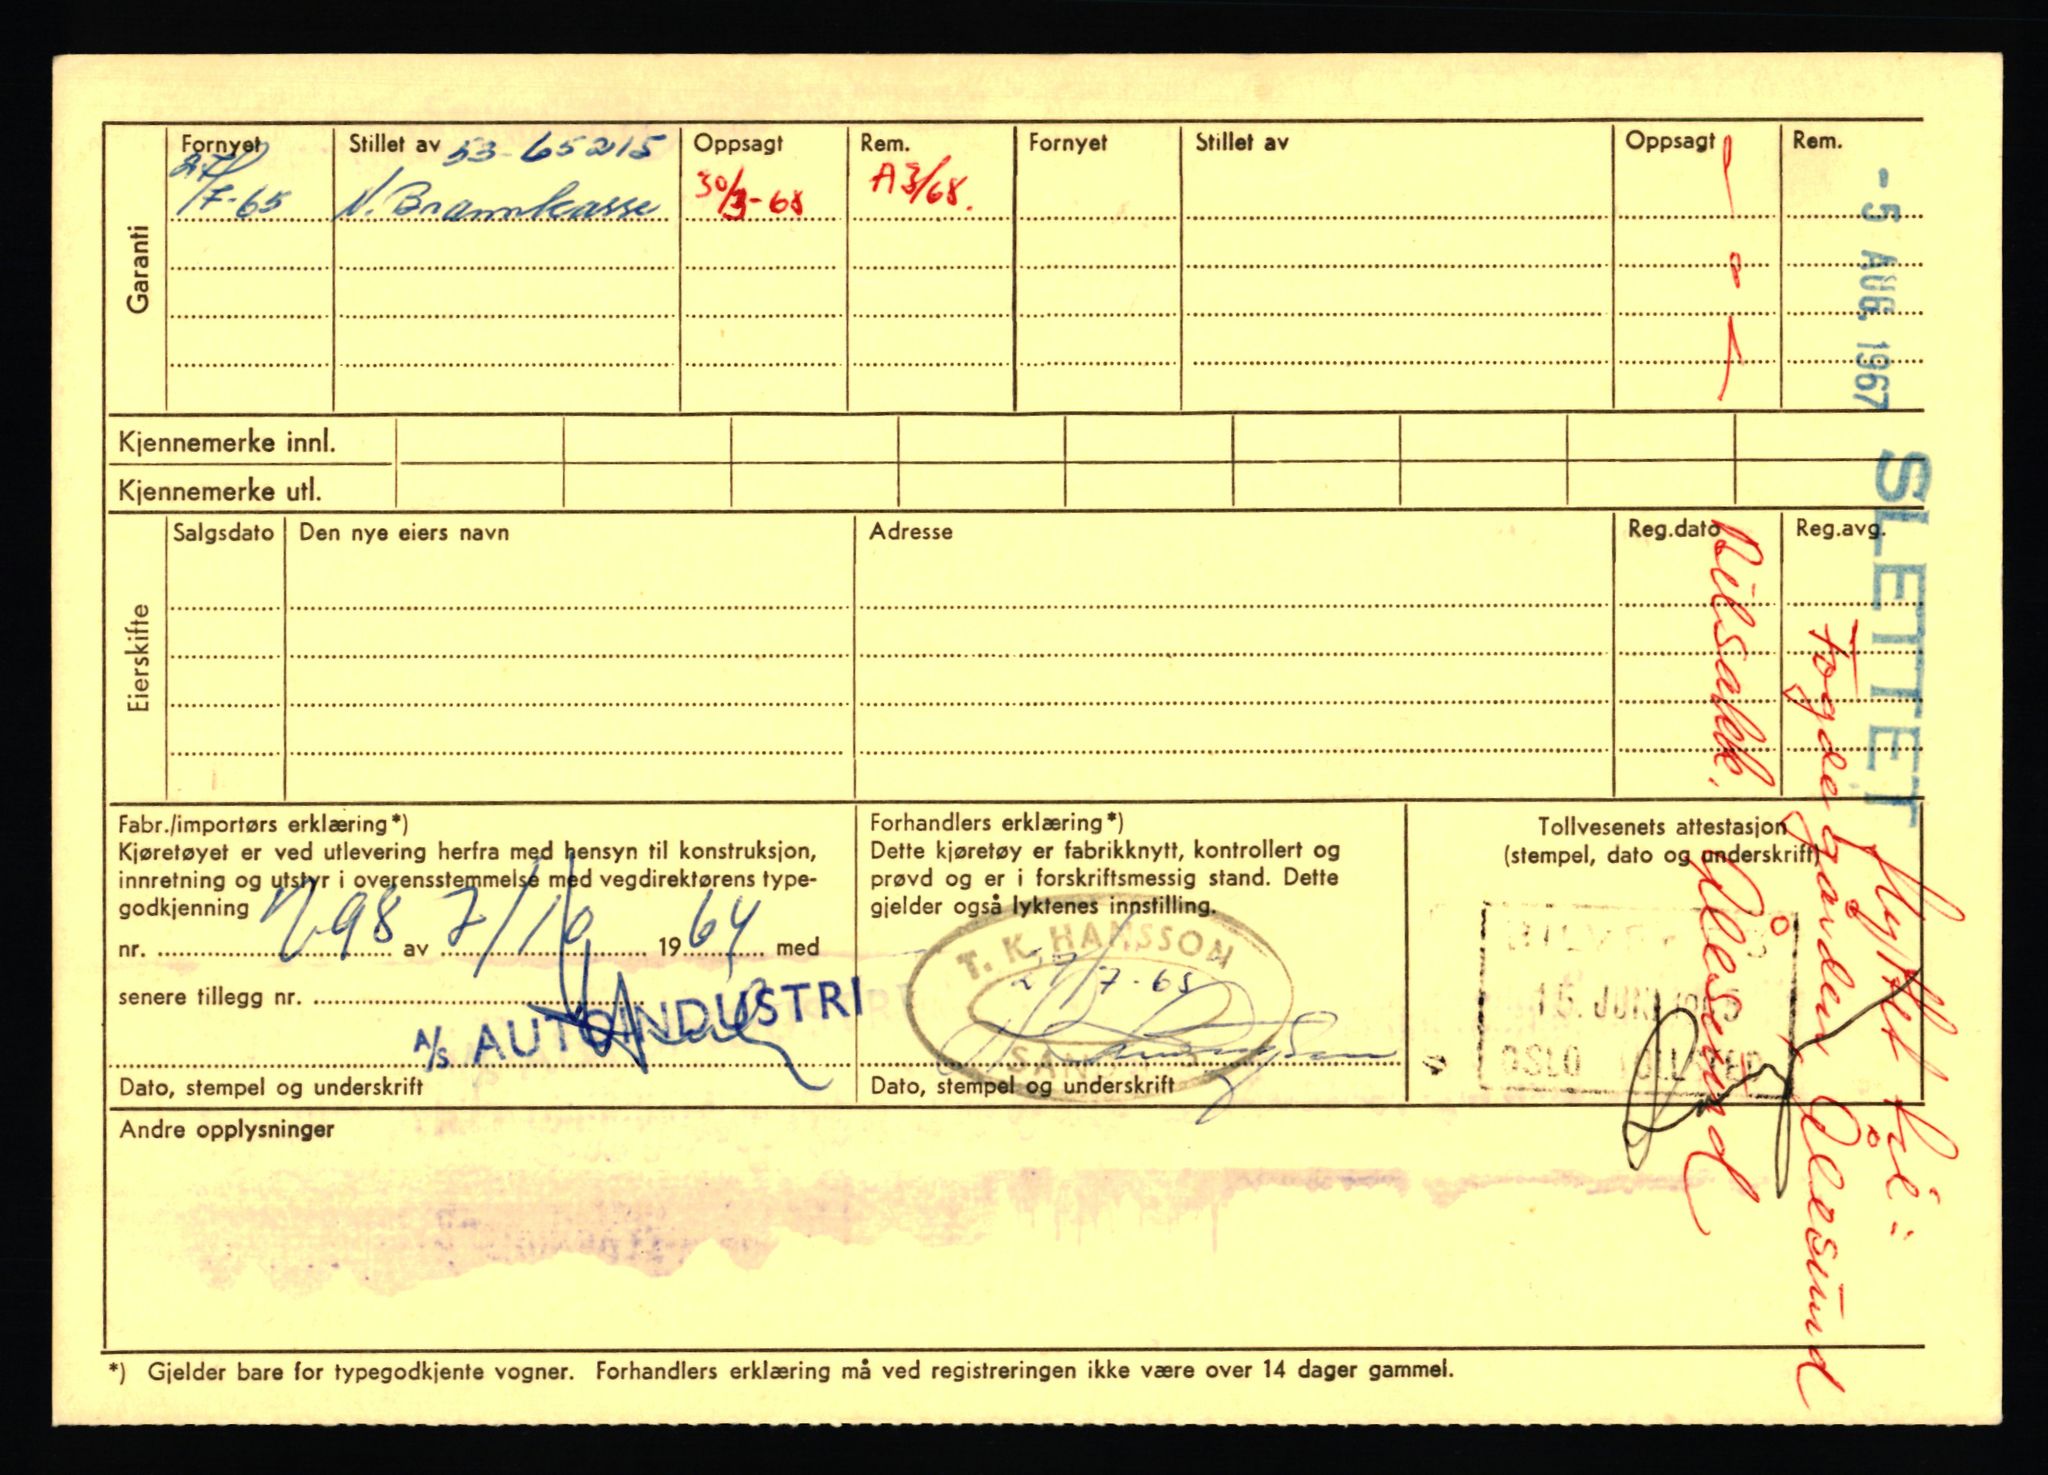 Garanti
Fornyet
Stillet av
Oppsagt
Rem.
Fornyet
Stillet av
Oppsagt
Rem.
27/7-65
53-65215
N. Brannkasse
30/3-68
A3/68.
- 5 AUG. 1967
SLETTET
Kjennemerke innl.
Kjennemerke utl.
Eierskifte
Salgsdato
Den nye eiers navn
Adresse
Reg.dato
Reg.avg.
Bilsakk.
Ålesund
Flytt til:
Fogdegården Ålesund
Fabr./importørs erklæring*)
Kjøretøyet er ved utlevering herfra med hensyn til konstruksjon,
innretning og utstyr i overensstemmelse med vegdirektørens type-
godkjenning
nr. 298 av 7/10 1964 med
senere tillegg nr.
A/S AUTOINDUSTRI
Dato, stempel og underskrift
Forhandlers erklæring*)
Dette kjøretøy er fabrikknytt, kontrollert og
prøvd og er i forskriftsmessig stand. Dette
gjelder også lyktenes innstilling.
T. K. HANSSON
27/7-65
Dato, stempel og underskrift
Tollvesenets attestasjon
(stempel, dato og underskrift)
15. JUNI 1965
OSLO
Andre opplysninger
*) Gjelder bare for typegodkjente vogner. Forhandlers erklæring må ved registreringen ikke være over 14 dager gammel.